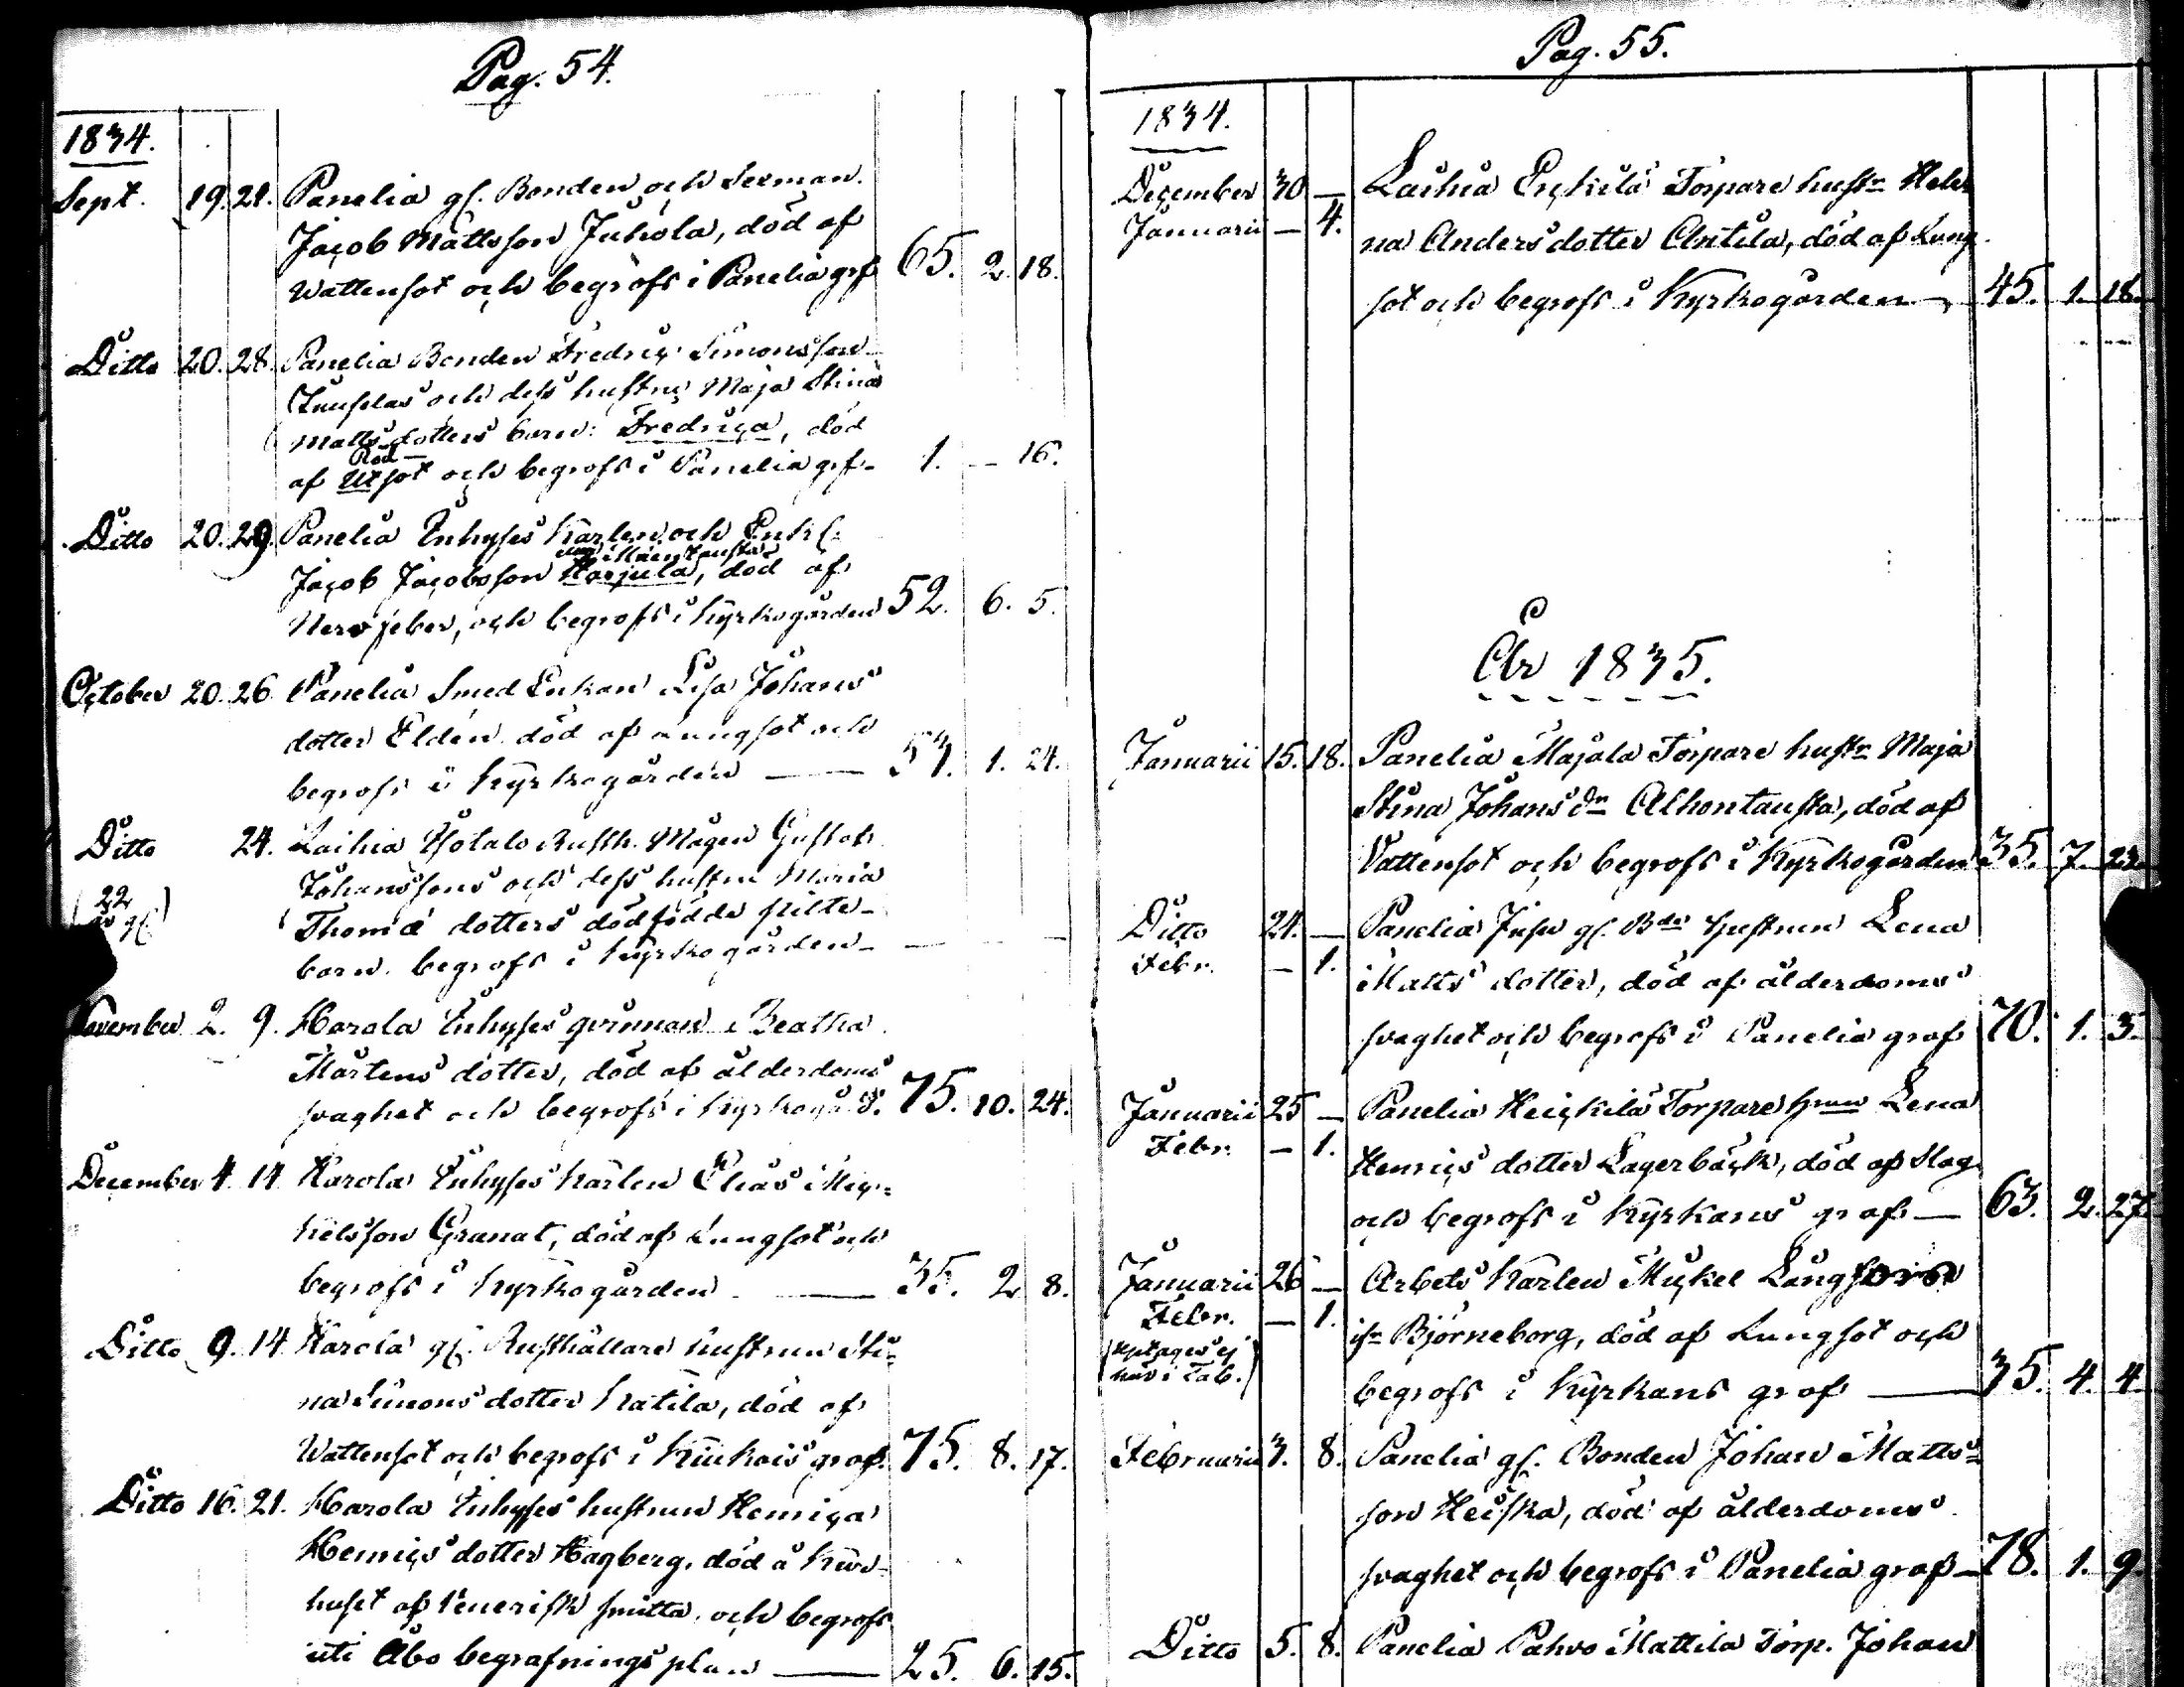 Pag. 54.
1834.
Sept. 19. 21. Panelia gl. Bonden och Sexman.
Jacob Mattsson Juhola, död af
Wattensot och begrofs i Panelia grf 65. 2. 18.
Ditto 20. 28. Panelia Bonden Fredric Simonsson
och dess hustru Maja Stina
Matts dotters barn: Fredrica, död
Röd
af Utsot och begrofs i Panelia grf. 1. — 16.
Ditto 20. 29. Panelia Inhyses Karlen och Enkl.
Jacob Jacobsson Harjula, död af
Nervfeber, och begrofs i Kyrkogården 52. 6. 5.
October 20. 26. Panelia Smed Enkan Lisa Johans
dotter Eldén död af Lungsot och
begrofs i Kyrkogården — 1. 24.
Ditto 24. Laihia Isotalo Rusth. Mågen Gustafs
(22
gl.)
Johanssons och dess hustru Maria
Thomæ dotters dödfödde
barn. begrofs i Kyrkogården — — —
November 2. 9. Harola Inhyses qvinnan Beatha
Mårtens dotter, död af ålderdoms
svaghet och begrofs i 75. 10. 24.
December 4. 14. Harola Inhyses Karlen Elias Mic-
kelsson Granat, död af Lungsot och
begrofs i Kyrkogården — 35. 2. 8.
Ditto 9. 14. Harola gl. Rusthållare hustrun Sti-
na Simons dotter Katila, död af
Wattensot och begrofs i Kiukais graf. 75. 8. 17.
Ditto 16. 21. Harola Inhyses hustrun Henrica
Henrics dotter Hagberg, död å Kur-
huset af Venerisk smitta, och begrofs
uti Åbo begrafnings plan — 25. 6. 15.
Pag. 55.
1834.
December 30 — Laihia Erickilä Torpare hustr. Hele-
Januarii — 4. na Anders dotter Antila, död af Lung-
sot och begrofs i Kyrkogården — 45. 1. 18.
År 1835.
Januarii 15. 18. Panelia Majala Torpare hustr. Maja
Stina Johans dr Alhontausta, död af
Vattensot och begrofs i Kyrkogården 35. 7. 23.
Ditto 24. — Panelia gl. Bde Hustrun Lena
Febr. — 1. Matts dotter, död af ålderdoms
svaghet och begrofs i Panelia graf 70. 1. 3.
Januarii 25 — Panelia Heickilä Torpare Lena
Febr. — 1. Henrics dotter Lagerbäck, död af Slag
och begrofs i Kyrkans graf — 63. 2. 27.
Januarii 26 — Arbets Karlen Mickel Långfors
Febr. — 1. ifr. Björneborg, död af Lungsot och
(upptages ej
här i Tab.)
begrofs i Kyrkans graf — 35. 4. 4.
Februarii 3. 8. Panelia gl. Bonden Johan Matts-
son Heiska, död af ålderdoms
svaghet och begrofs i Panelia graf — 78. 1. 9.
Ditto 5. 8. Panelia Pahvo Mattila Torp. Johan